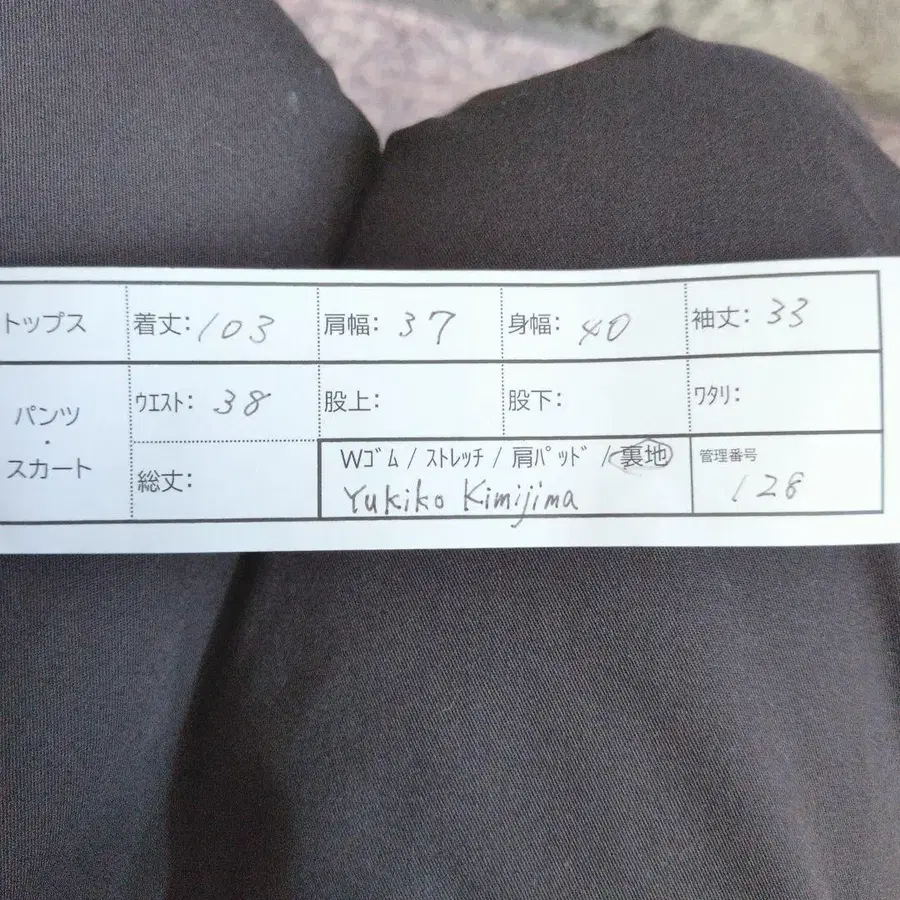 トップス 着丈: 103 肩幅: 37 身幅: 40 袖丈: 33
パンツ・スカート ウエスト: 38 股上: 股下: ワタリ:
総丈: Wゴム / ストレッチ / 肩パッド / 裏地 管理番号
Yukiko Kimijima 128